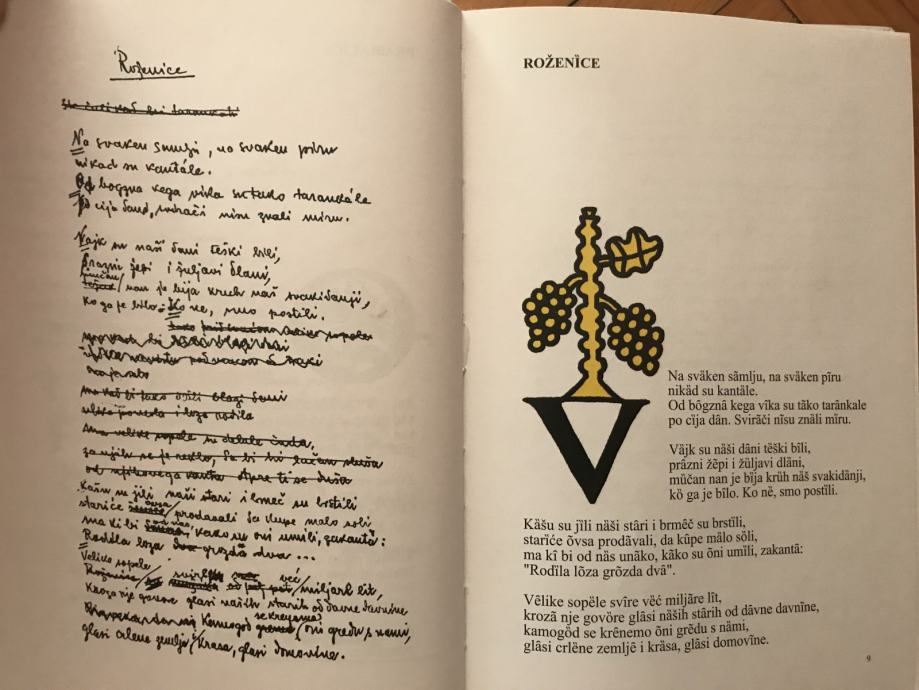 Roženice
Na svaken samlju, na svaken piru
nikad su kantále.
Od bogzna kega vika su tako tarankále
po cija dan, svirači nisu znali miru.
Vajk su naši dani teški bili,
prazni žepi i žuljavi dlani,
mučan nan je bija kruh naš svakidanji,
ko ga je bilo. Ko ne, smo postili.
Kašu su jili naši stari i brmeč su brstili
stariće ovsa prodavali da kupe malo soli
ma ki bi od nas, kako su oni umili, zakanta:
Rodila loza grozda dva ...
Velike sopele
svire već miljarć lit,
kroza nje govore glasi naših starih od davne davnine
kamogod se krenemo oni gredu s nami,
glasi crlene zemlje i krasa, glasi domovine.
ROŽENȈCE
Na sväken sãmlju, na sväken pîru
nikäd su kantäle.
Od bôgznâ kega vîka su tãko tarânkale
po cîja dân. Svirãči nîsu znäli mîru.
Väjk su näši dãni tëški bîli,
prâzni žëpi i žüljavi dläni,
müčan nan je bïja krüh näš svakidânji,
kö ga je bîlo. Ko në, smo postîli.
Käšu su jïli näši stâri i brmêč su brstîli,
starïće õvsa prodävali, da kûpe mälo söli,
ma kî bi od näs unäko, käko su õni umïli, zakantä:
"Rodïla lõza grõzda dvä".
Vêlike sopële svîre vëć miljäre lît,
krozä nje govöre glâsi näših stârih od dâvne davnïne,
kamogöd se krênemo õni grëdu s nämi,
glâsi crlëne zemljë i kräsa, glâsi domovïne.
9